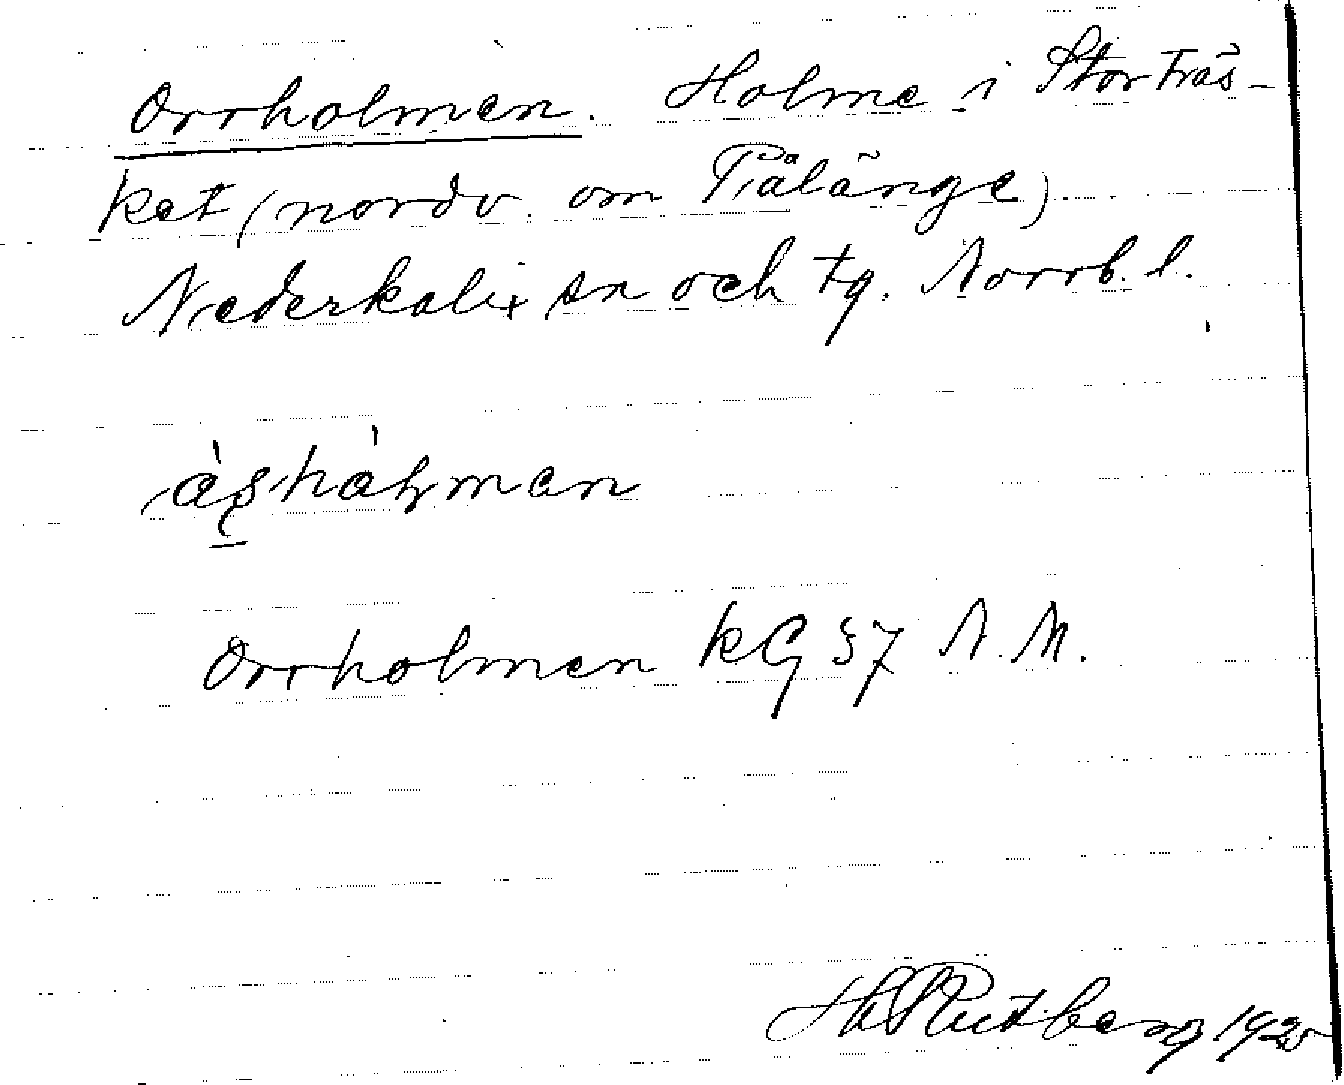 Orrholmen. Holme i Storträs-
ket (nordv. om Pålänge)
Nederkalix sn och tg. Norrb. l.
Orrholmen kG 57 N. M.
Rutberg 192